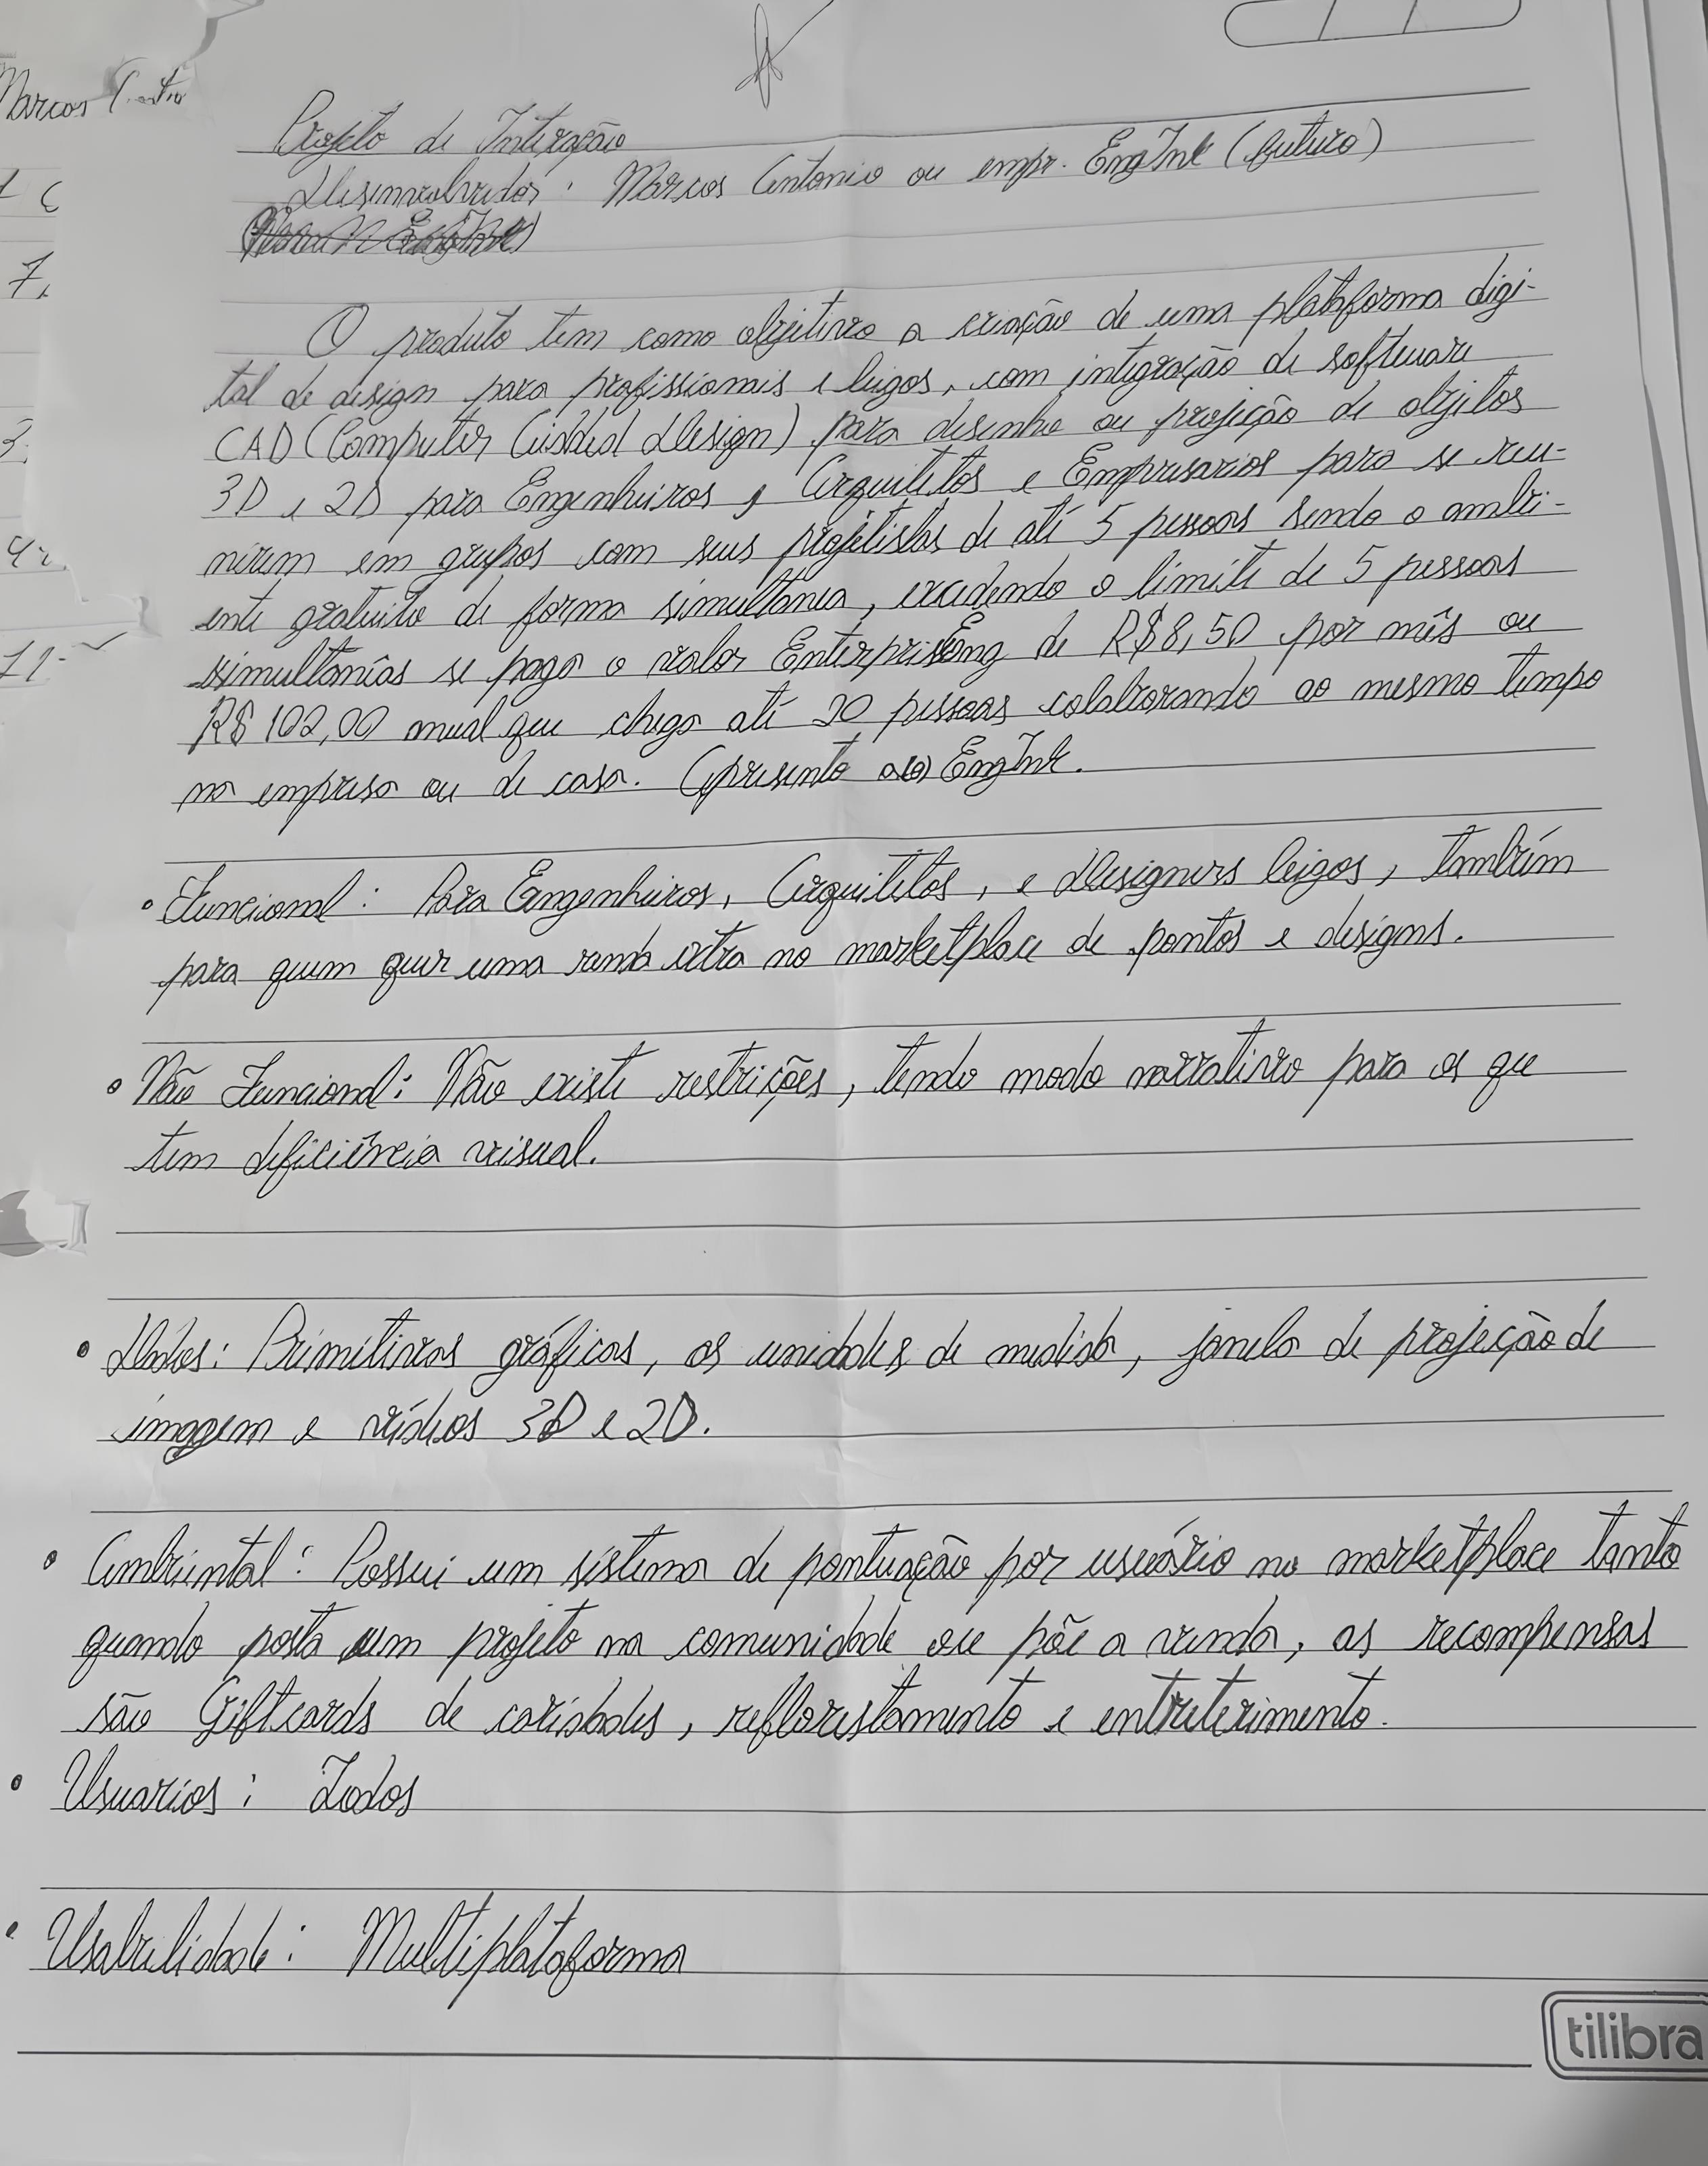 Marcos
Projeto de Interação
Desenvolvedor: Marcos Antonio ou empr. EngInk (futuro)
O produto tem como objetivo a criação de uma plataforma digi-
tal de design para profissionais e leigos, com integração de software
CAD (Computer Aidded Design) para desenho ou projeção de objetos
3D e 2D para Engenheiros, Arquitetos e Empresarios para se reu-
nirem em grupos com seus projetistas de até 5 pessoas sendo o ambi-
ente gratuito de forma simultânea, excedendo o limite de 5 pessoas
simultanêas se paga o valor EnterpriseEng de R$8,50 por mês ou
R$ 102,00 anual que chega até 20 pessoas colaborando ao mesmo tempo
na empresa ou de casa. Apresento a(o) EngInk.
• Funcional: Para Engenheiros, Arquitetos, e Designers leigos, também
para quem quer uma renda extra no marketplace de pontos e designs.
• Não Funcional: Não existe restrições, tendo modo narrativo para os que
tem deficiência visual.
• Dados: Primitivas gráficas, as unidades de medida, janela de projeção de
imagem e vídeos 3D e 2D.
• Ambiental: Possui um sistema de pontuação por usuário no marketplace tanto
quando posta um projeto na comunidade ou põe a venda, as recompensas
são Giftcards de caridades, reflorestamento e entreterimento.
• Usuarios: Todos
• Usabilidade: Multiplataforma
tilibra